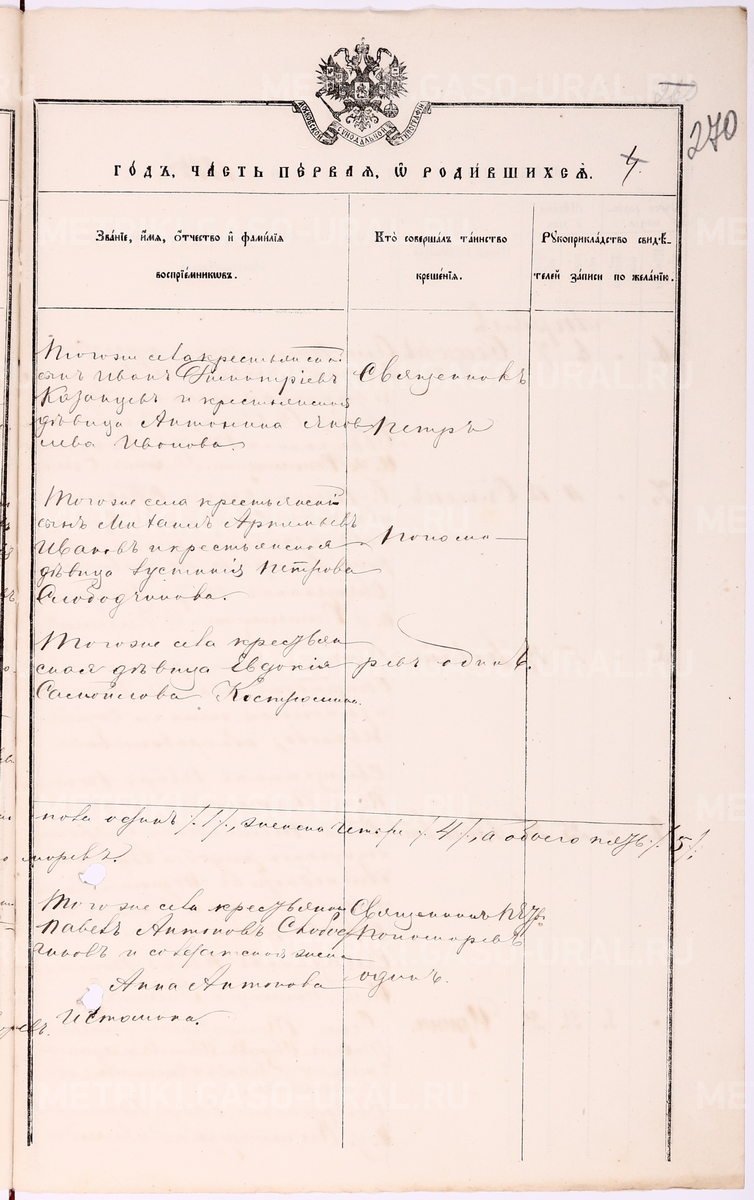 METRIKI.GASO-URAL.RU
270
МОСКОВСКОЙ СИНОДАЛЬНОЙ ТИПОГРАФІИ
ГО́ДЪ, ЧА́СТЬ ПЕ́РВАѦ, Ѽ РОДИ́ВШИХСѦ. 4.
ЗВА́НІЕ, И҆́МѦ, Ѻ҆́ТЧЕСТВО И҆ ФАМИ́ЛІѦ
ВОСПРІЕ́МНИКѠВЪ.
КТО̀ СОВЕРША́ЛЪ ТА́ИНСТВО
КРЕЩЕ́НІѦ.
РꙊКОПРИКЛА́ДСТВО СВИДѢ́-
ТЕЛЕЙ ЗА́ПИСИ ПО ЖЕЛА́НІЮ.
Тогоже села крестьянскій
сынъ Иванъ Димитріевъ
Казанцевъ и крестьянская
дѣвица Антонина Яков
лева Иванова.
Священникъ
Петръ
Тогоже села крестьянскій
сынъ Михаилъ Артемьевъ
Ивановъ и крестьянская
дѣвица Іустинія Петрова
Слободчикова.
Поно­ма
Тогоже села крестьян
ская дѣвица Евдокія
Самойлова
ревъ одинъ.
одинъ /1/, женска четыре /4/, а обоего пять /5/.
моревъ.
Тогоже села крестьянинъ
Павелъ Антоновъ Слобод
чиковъ и солдатская жена
Анна Антонова
Истомина.
Священникъ Петръ
Пономаревъ
одинъ.